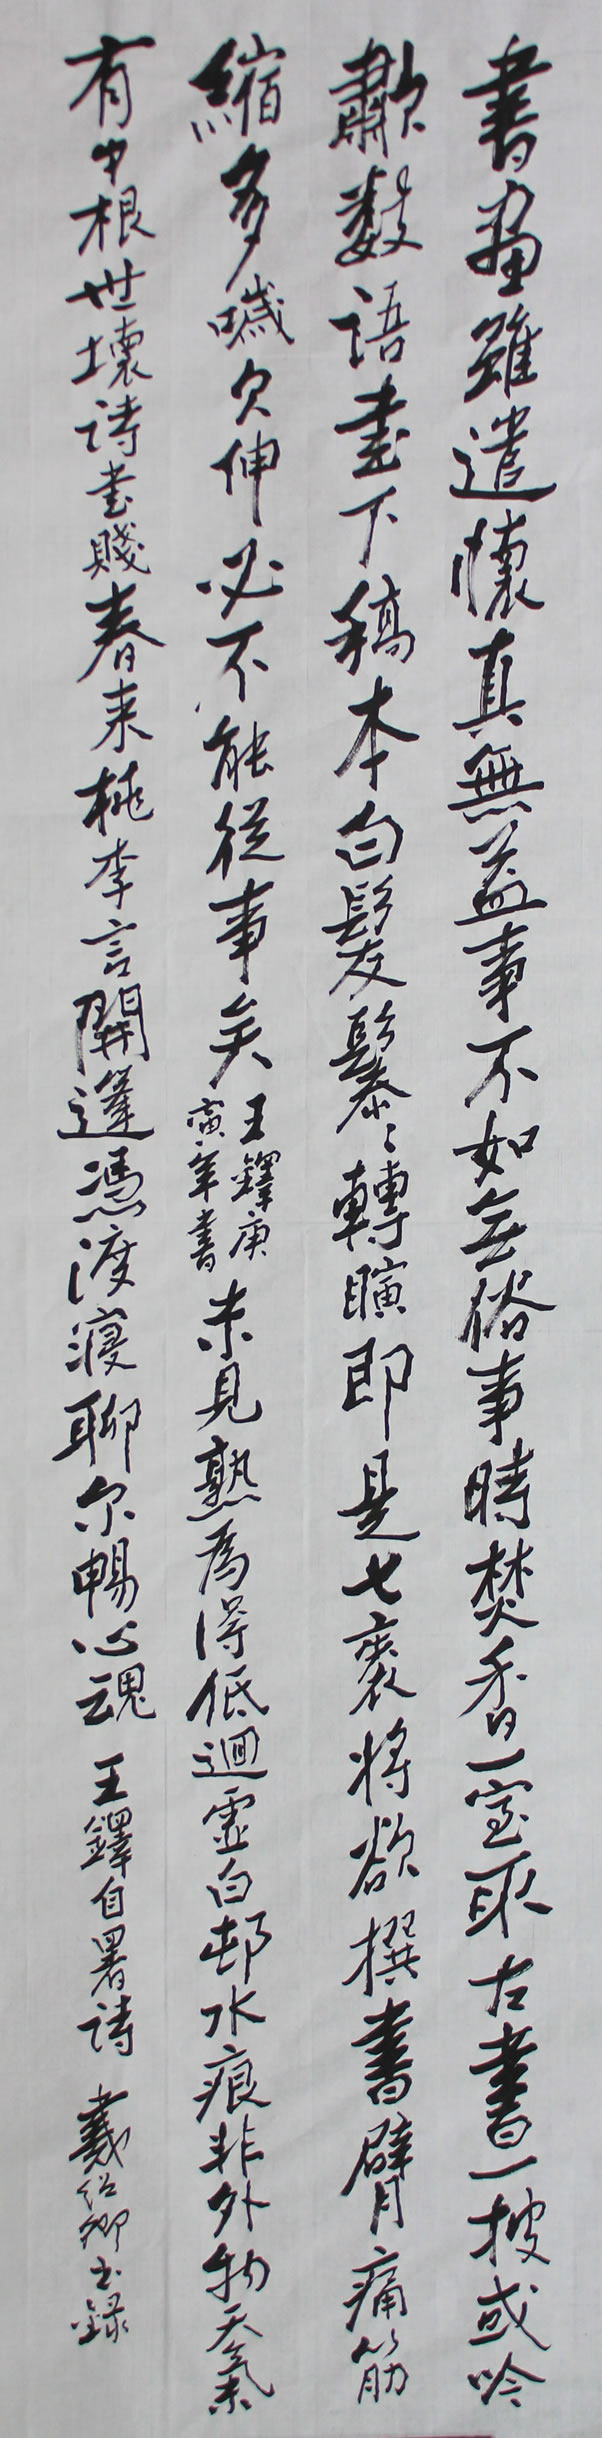 書畫雖遣懷真無益事不如無俗事時焚香一室取古書一披或吟
歗數語書下稿本白髮鬖〻轉瞬即是七袠將欲撰書臂痛筋
縮多嚏欠伸必不能從事矣王鐸庚寅年書未見熟為得低迴虛白邨水痕非外物天氣
有中根世壞詩書賤春来桃李言開篷憑渡寢聊尔暢心魂 王鐸自署詩 戴紹卿書錄